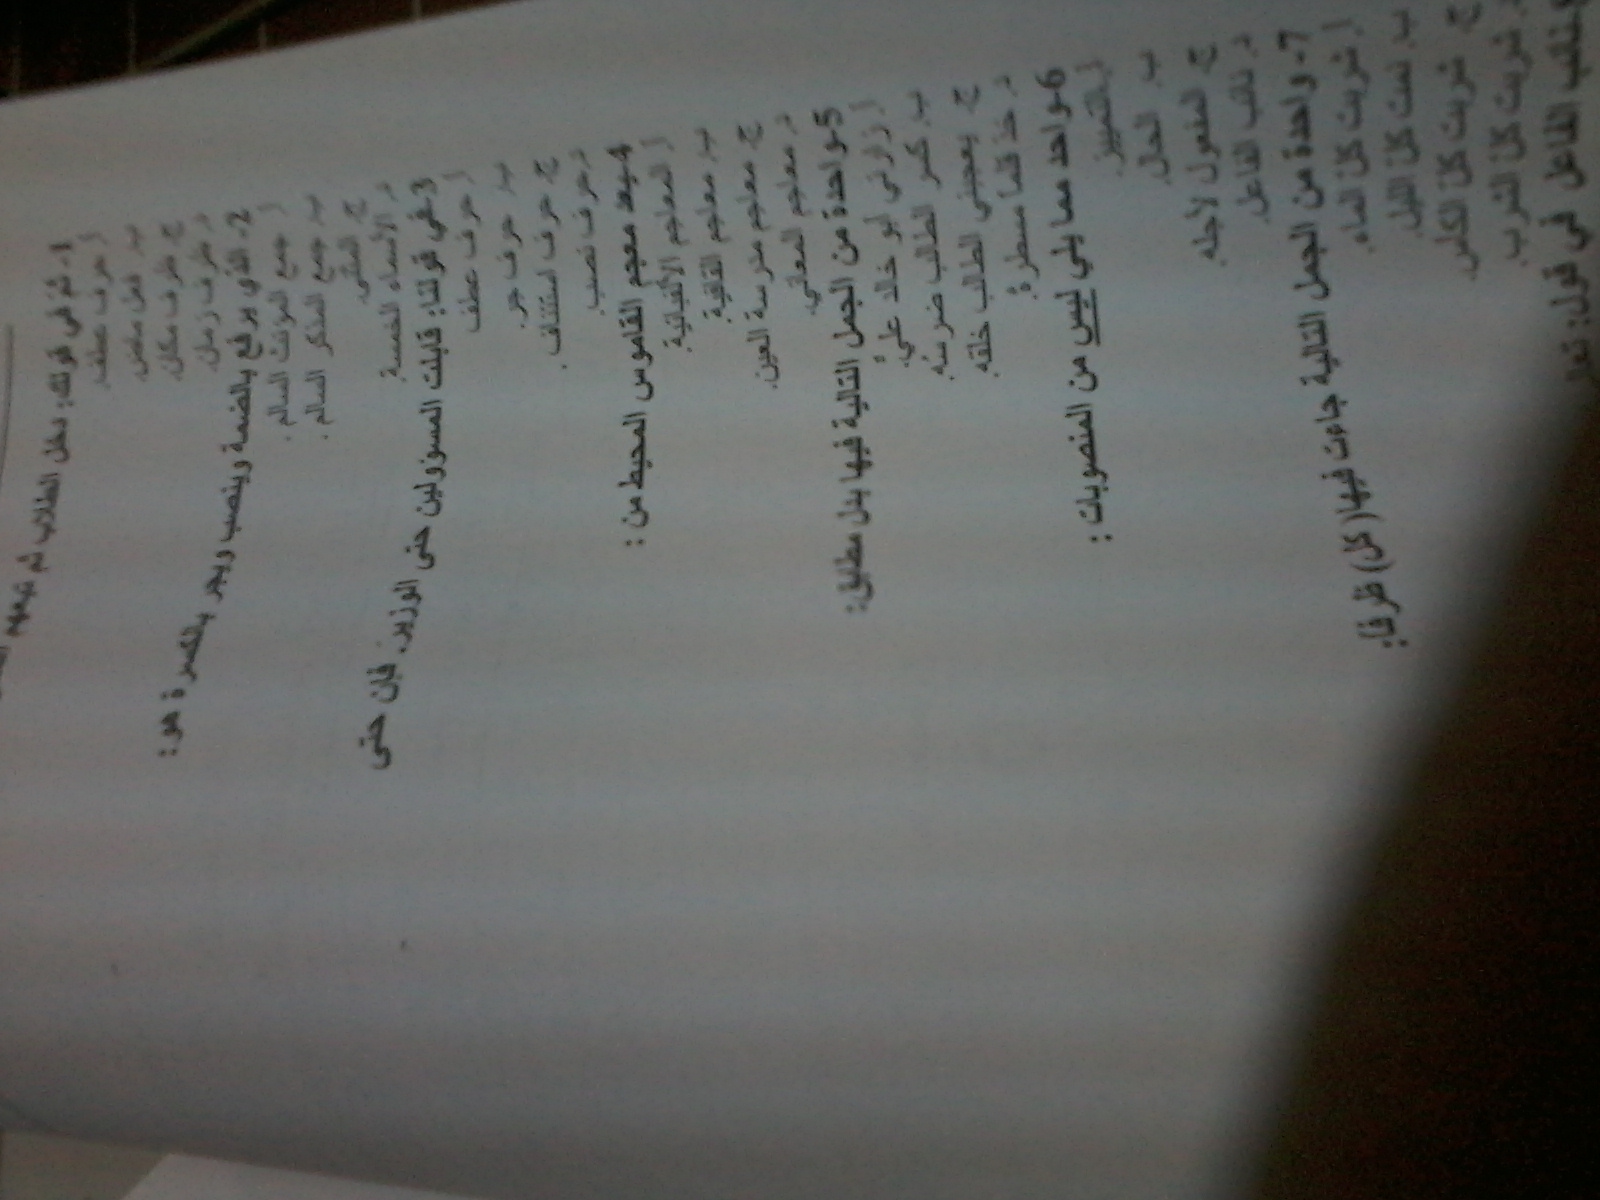 1- ثمّ في قولك: دخل الطلاب ثم تبعهم
أ. حرف عطف.
ب. فعل ماض.
ج. ظرف مكان.
د. ظرف زمان.
2- الذي يرفع بالضمة وينصب ويجر بالكسرة هو:
أ. جمع المؤنث السالم.
ب. جمع المذكر السالم.
ج. المثنى.
د. الأسماء الخمسة.
3-في قولنا: قابلت المسؤولين حتى الوزير. فإن حتى
أ. حرف عطف
ب. حرف جر.
ج. حرف استئناف.
د. حرف نصب.
4-يعد معجم القاموس المحيط من :
أ. المعاجم الألفبائية.
ب. معاجم القافية.
ج. معاجم مدرسة العين.
د. معاجم المعاني.
5-واحدة من الجمل التالية فيها بدل مطابق:
أ. زارني أبو خالد عليٌ.
ب. كسر الطالب ضرسُه.
ج. يعجبني الطالب خلقه
د. خذ قلماً مسطرةً.
6-واحد مما يلي ليس من المنصوبات :
أ. التمييز.
ب. الحال.
ج. المفعول لأجله.
د. نائب الفاعل.
7- واحدة من الجمل التالية جاءت فيها( كل) ظرفا:
أ. شربت كل الماء.
ب. نمت كل الليل.
ج. شربت كل الكأس.
د. شربت كل الشرب.
نائب الفاعل في قول: